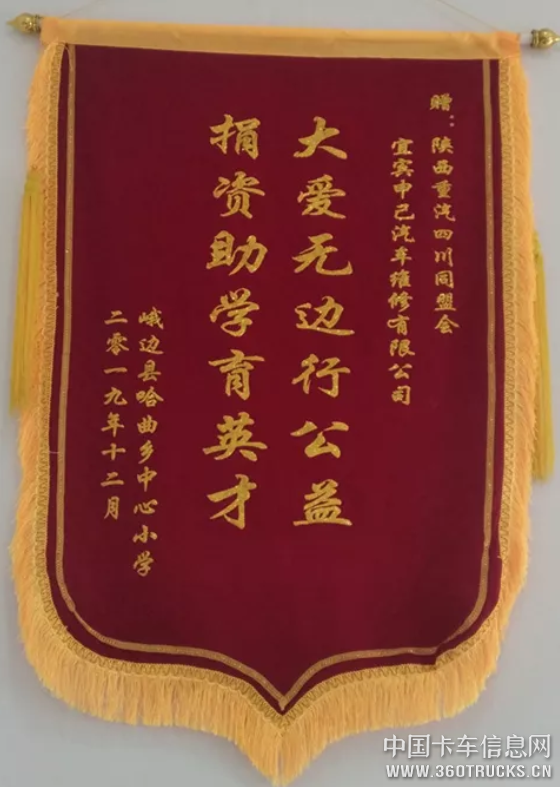 赠：陕西重汽四川同盟会
宜宾申己汽车维修有限公司
大爱无边行公益
捐资助学育英才
峨边县哈曲乡中心小学
二零一九年十二月
中国卡车信息网
WWW.360TRUCKS.CN